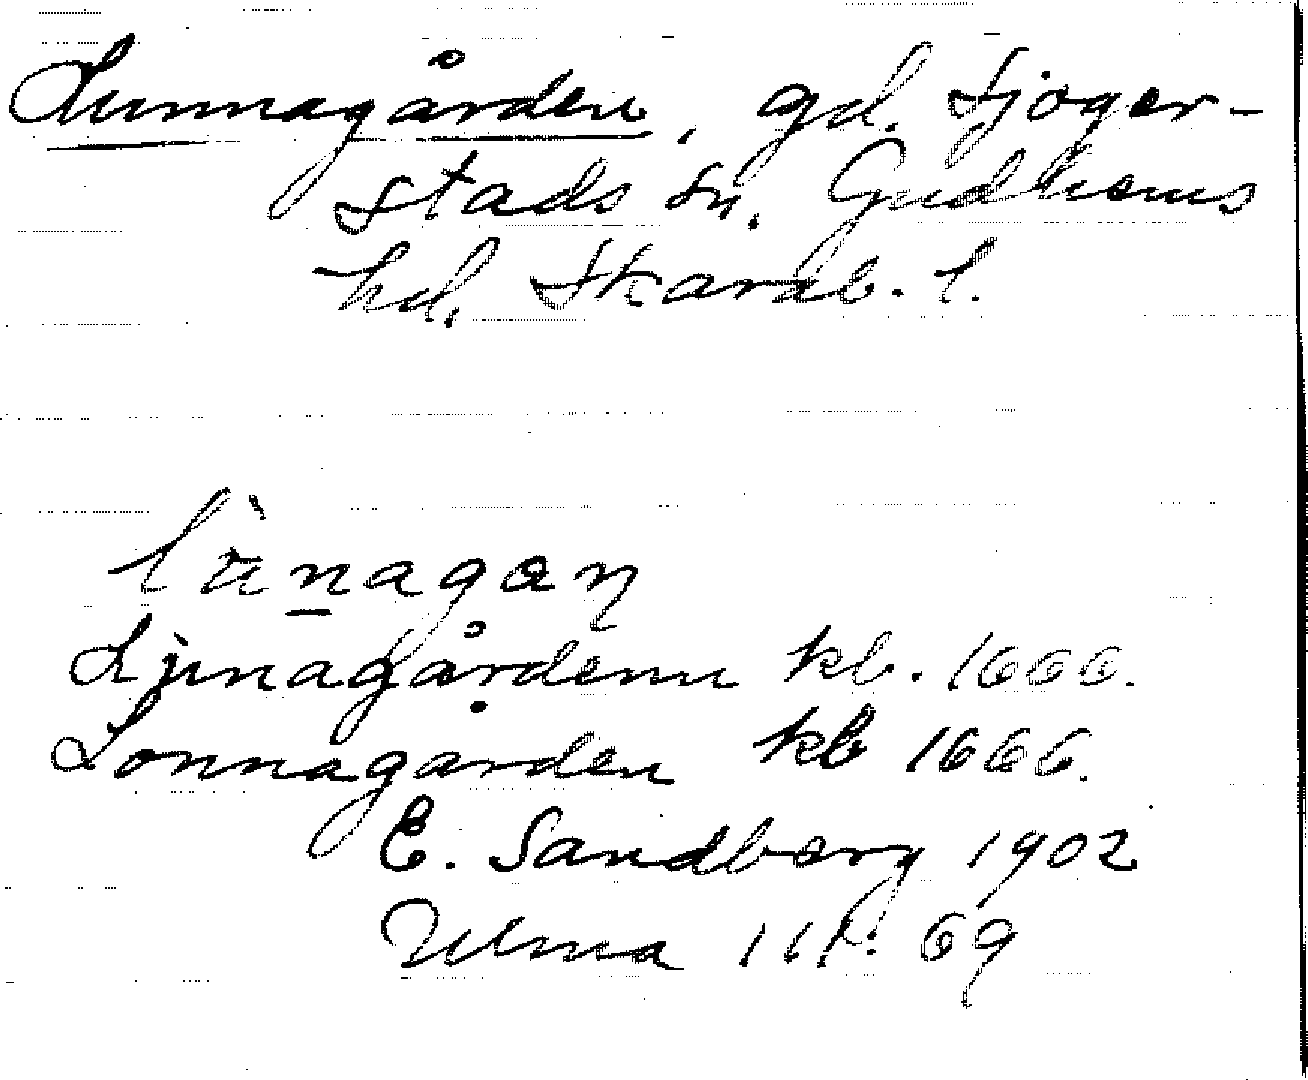 Lunnagården, gd. Sjoger-
stads sn. Gudhems
hd. Skarab. l.
lànagan
Ljunagårdenn kb. 1666.
Lonnagården kb 1666.
E. Sandberg 1902
Ulma 111: 69